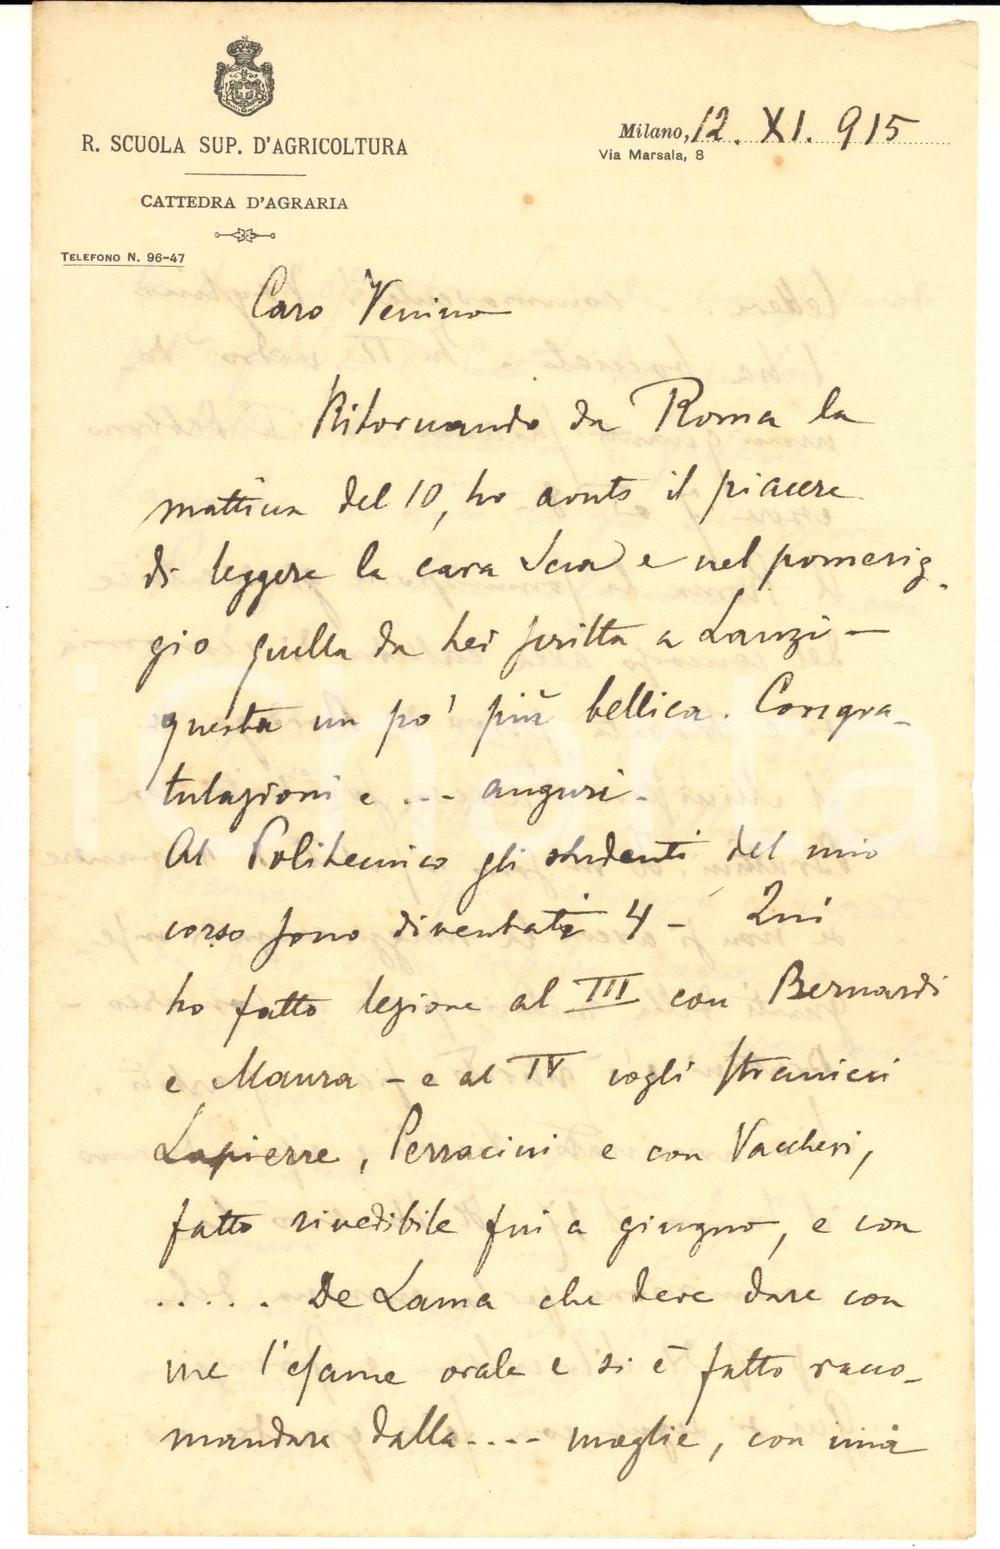 R. SCUOLA SUP. D'AGRICOLTURA
CATTEDRA D'AGRARIA
TELEFONO N. 96-47
Milano, 12. XI. 915
Via Marsala, 8
Caro Venino
Ritornando da Roma la
mattina del 10, ho avuto il piacere
di leggere la cara Sua e nel pomerig-
gio quella da Lei scritta a Lanzi —
questa un po' più bellica. Congra-
tulazioni e ... auguri.
Al Politecnico gli studenti del mio
corso sono diventati 4 - Qui
ho fatto lezione al III con Bernardi
e Maura - e al IV cogli stranieri
Lapierre, Perracini e con Vaccheri,
fatto rivedibile fui a giugno, e con
..... De Lama che deve dare con
me l'esame orale e si è fatto racco-
mandare dalla .... moglie, con una